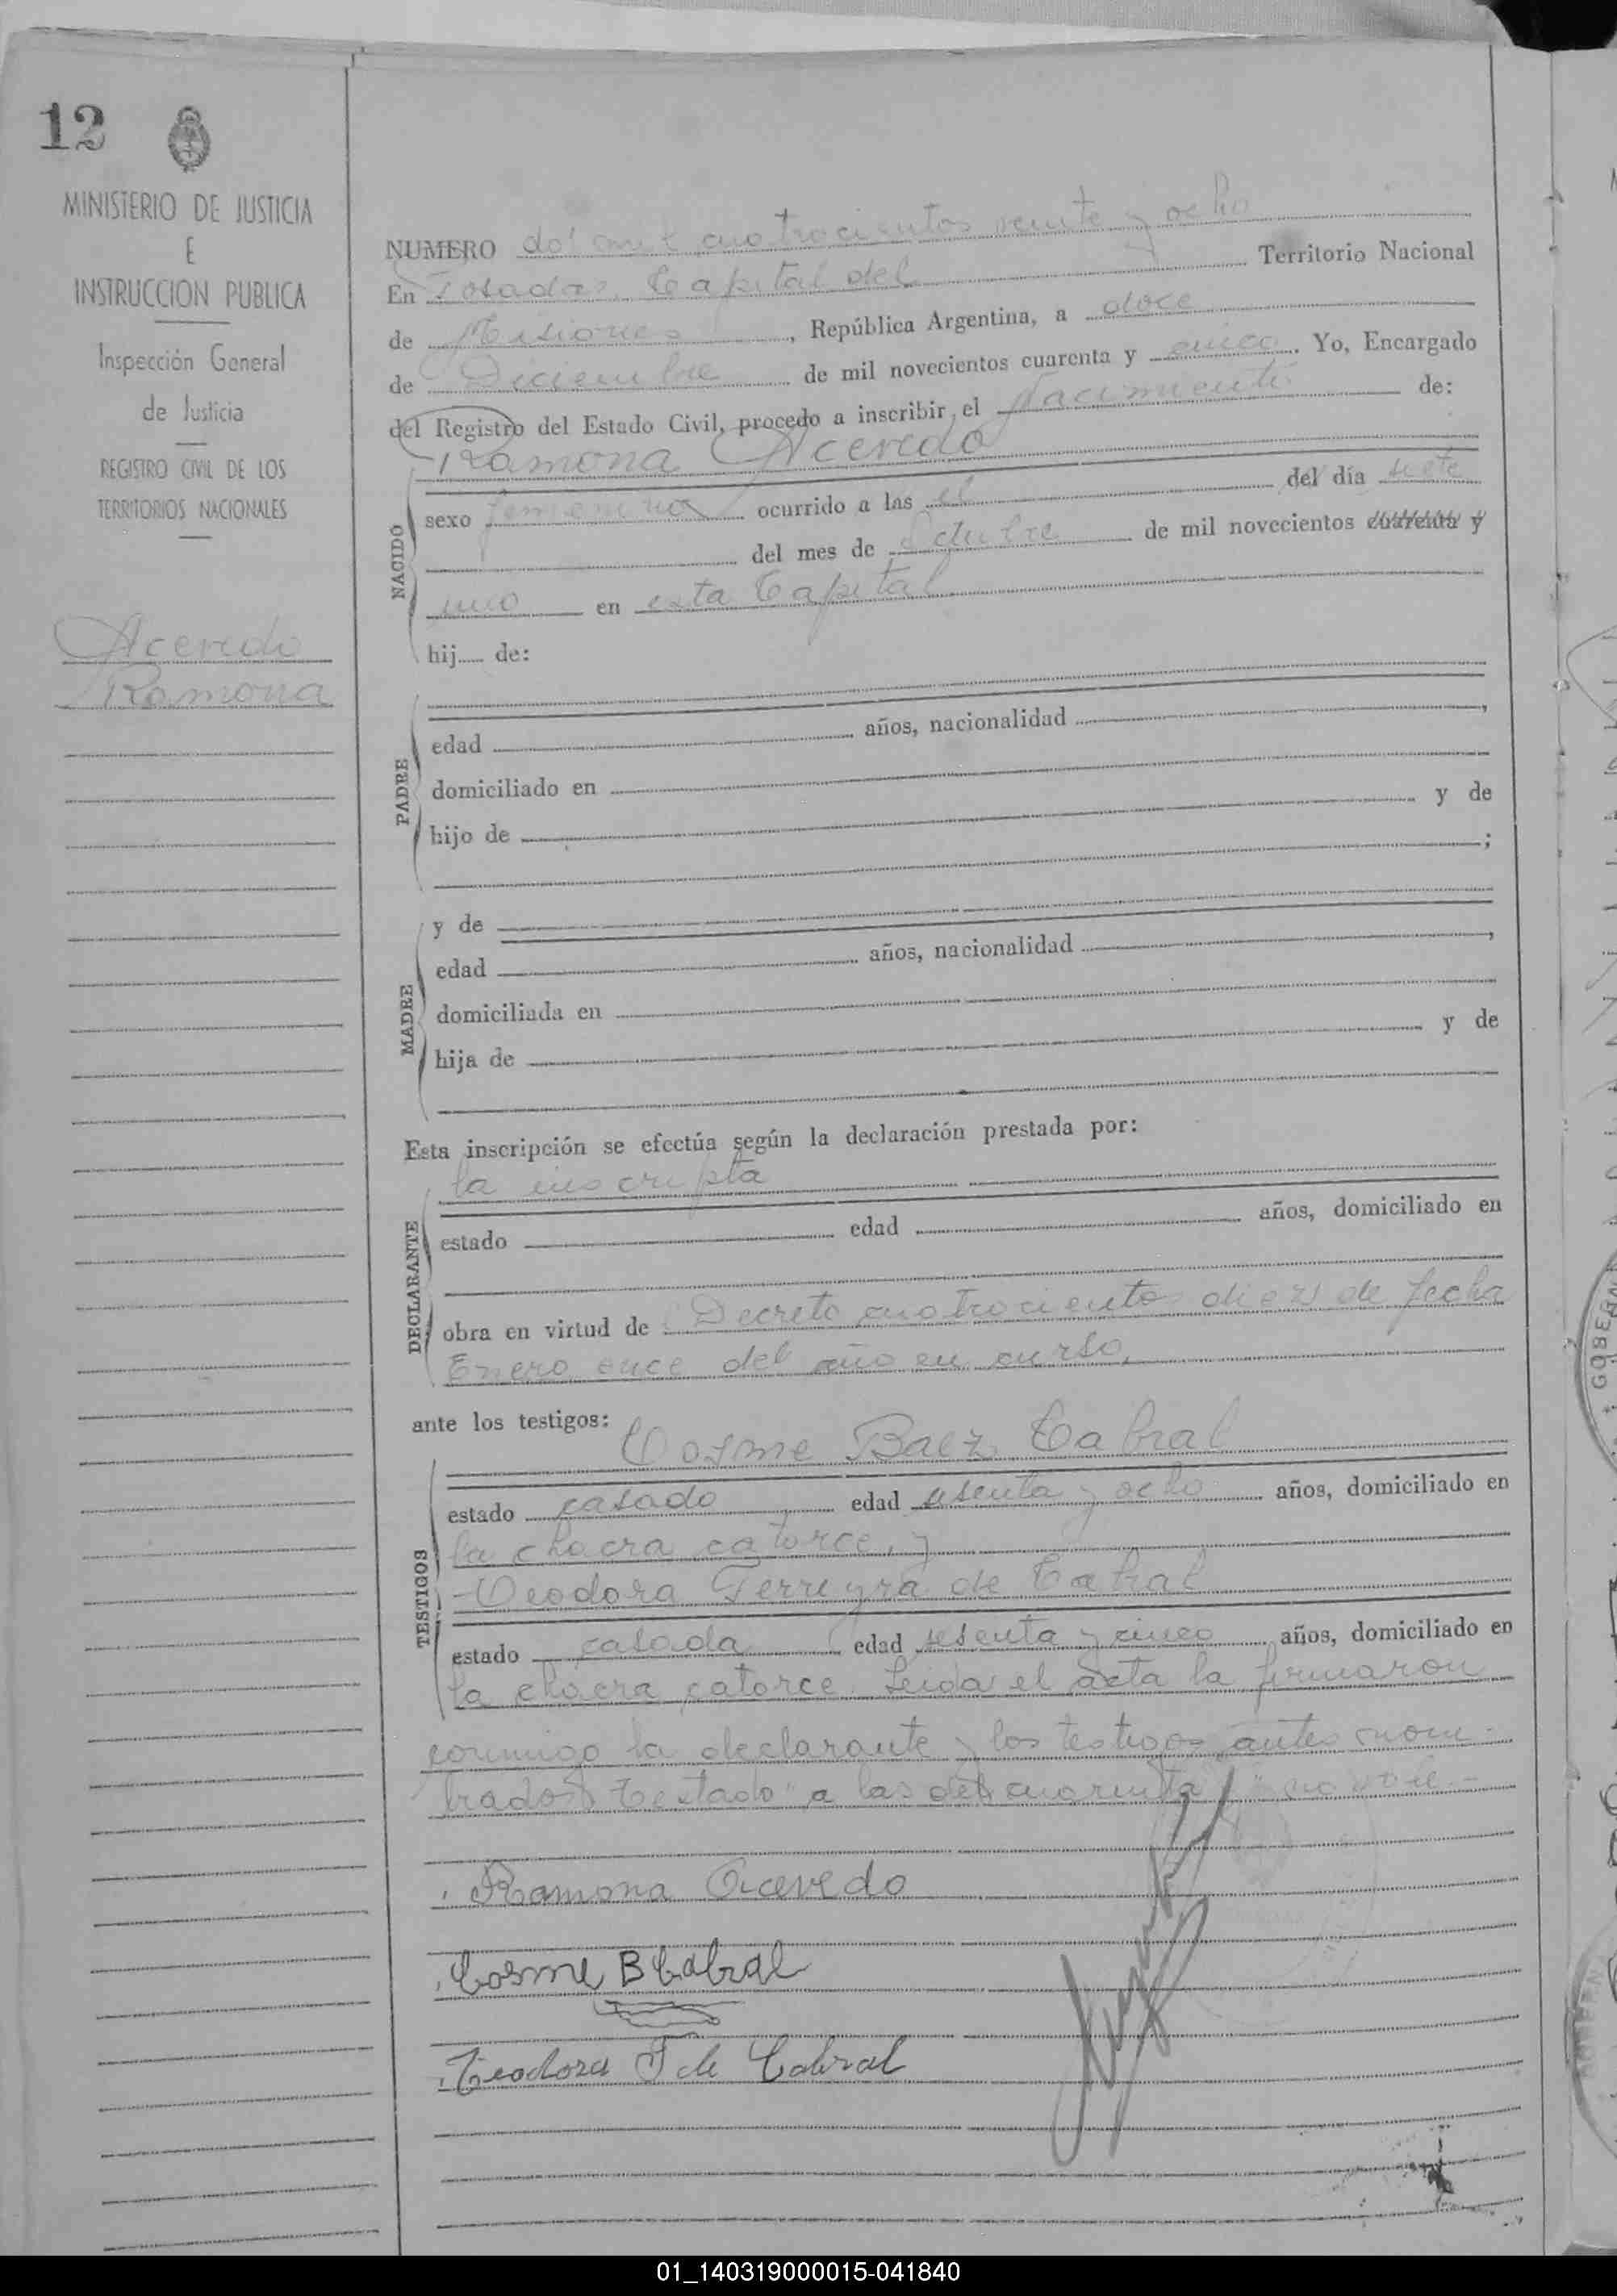 12
MINISTERIO DE JUSTICIA
E
INSTRUCCION PUBLICA
Inspección General
de Justicia
REGISTRO CIVIL DE LOS
TERRITORIOS NACIONALES
Acevedo
Ramona
NUMERO dos mil cuatrocientos veinte y ocho
En Posadas, Capital del Territorio Nacional
de Misiones, República Argentina, a doce
de Diciembre de mil novecientos cuarenta y cinco. Yo, Encargado
del Registro del Estado Civil, procedo a inscribir el Nacimiento de:
Ramona Acevedo
NACIDO
sexo femenino ocurrido a las el del día siete
del mes de Octubre de mil novecientos cuarenta y
uno en esta Capital
hij..... de:
PADRE
edad años, nacionalidad ,
domiciliado en
hijo de y de
;
MADRE
y de
edad años, nacionalidad ,
domiciliada en
hija de y de
Esta inscripción se efectúa según la declaración prestada por:
la inscripta
DECLARANTE
estado edad años, domiciliado en
obra en virtud de Decreto cuatrocientos diez de fecha
Enero once del año en curso,
ante los testigos:
Cosme Baez Cabral
TESTIGOS
estado casado edad sesenta y ocho años, domiciliado en
la chacra catorce, y
Teodora Ferreyra de Cabral
estado casada edad sesenta y cinco años, domiciliado en
la chacra catorce. Leida el acta la firmaron
conmigo la declarante y los testigos antes nom-
brados Testado "a las del cuarenta y" no vale.-
Ramona Acevedo
Cosme B Cabral
Teodora F de Cabral
GOBER
01_140319000015-041840